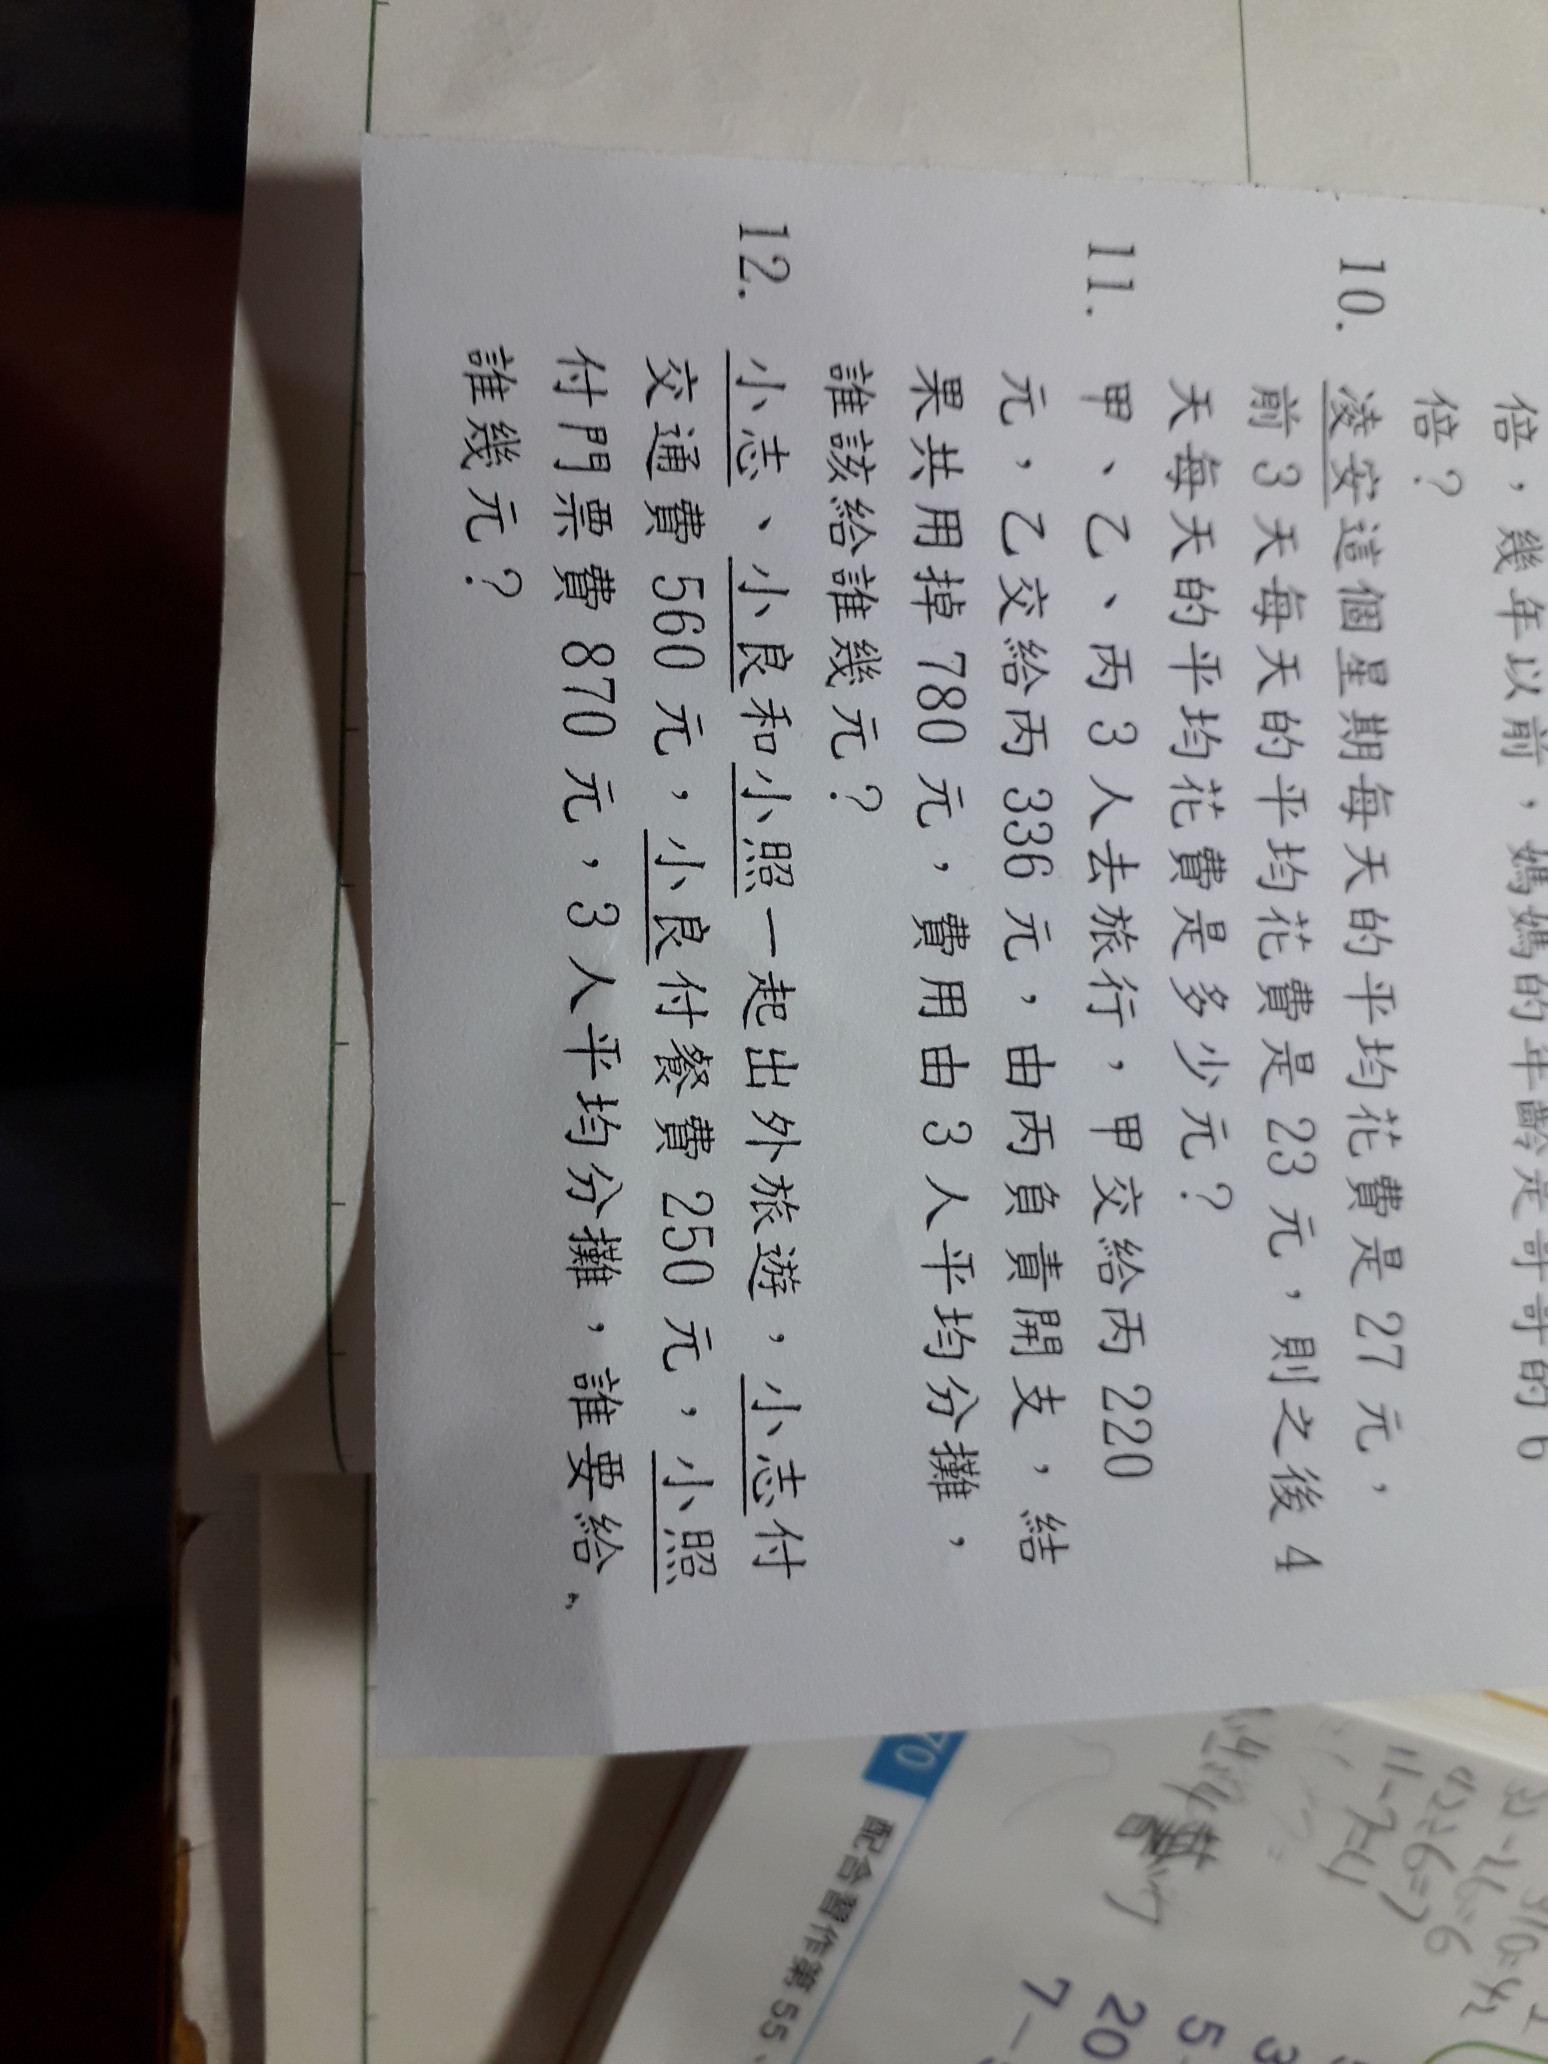 倍，幾年以前，媽媽的年齡是哥哥的6
倍？
10. 凌安這個星期每天的平均花費是27元，
前3天每天的平均花費是23元，則之後4
天每天的平均花費是多少元？
11. 甲、乙、丙3人去旅行，甲交給丙220
元，乙交給丙336元，由丙負責開支，結
果共用掉780元，費用由3人平均分攤，
誰該給誰幾元？
12. 小志、小良和小照一起出外旅遊，小志付
交通費560元，小良付餐費250元，小照
付門票費870元，3人平均分攤，誰要給
誰幾元？
配合習作第55、
11-7=4
42÷6=7
3
5
20
7-